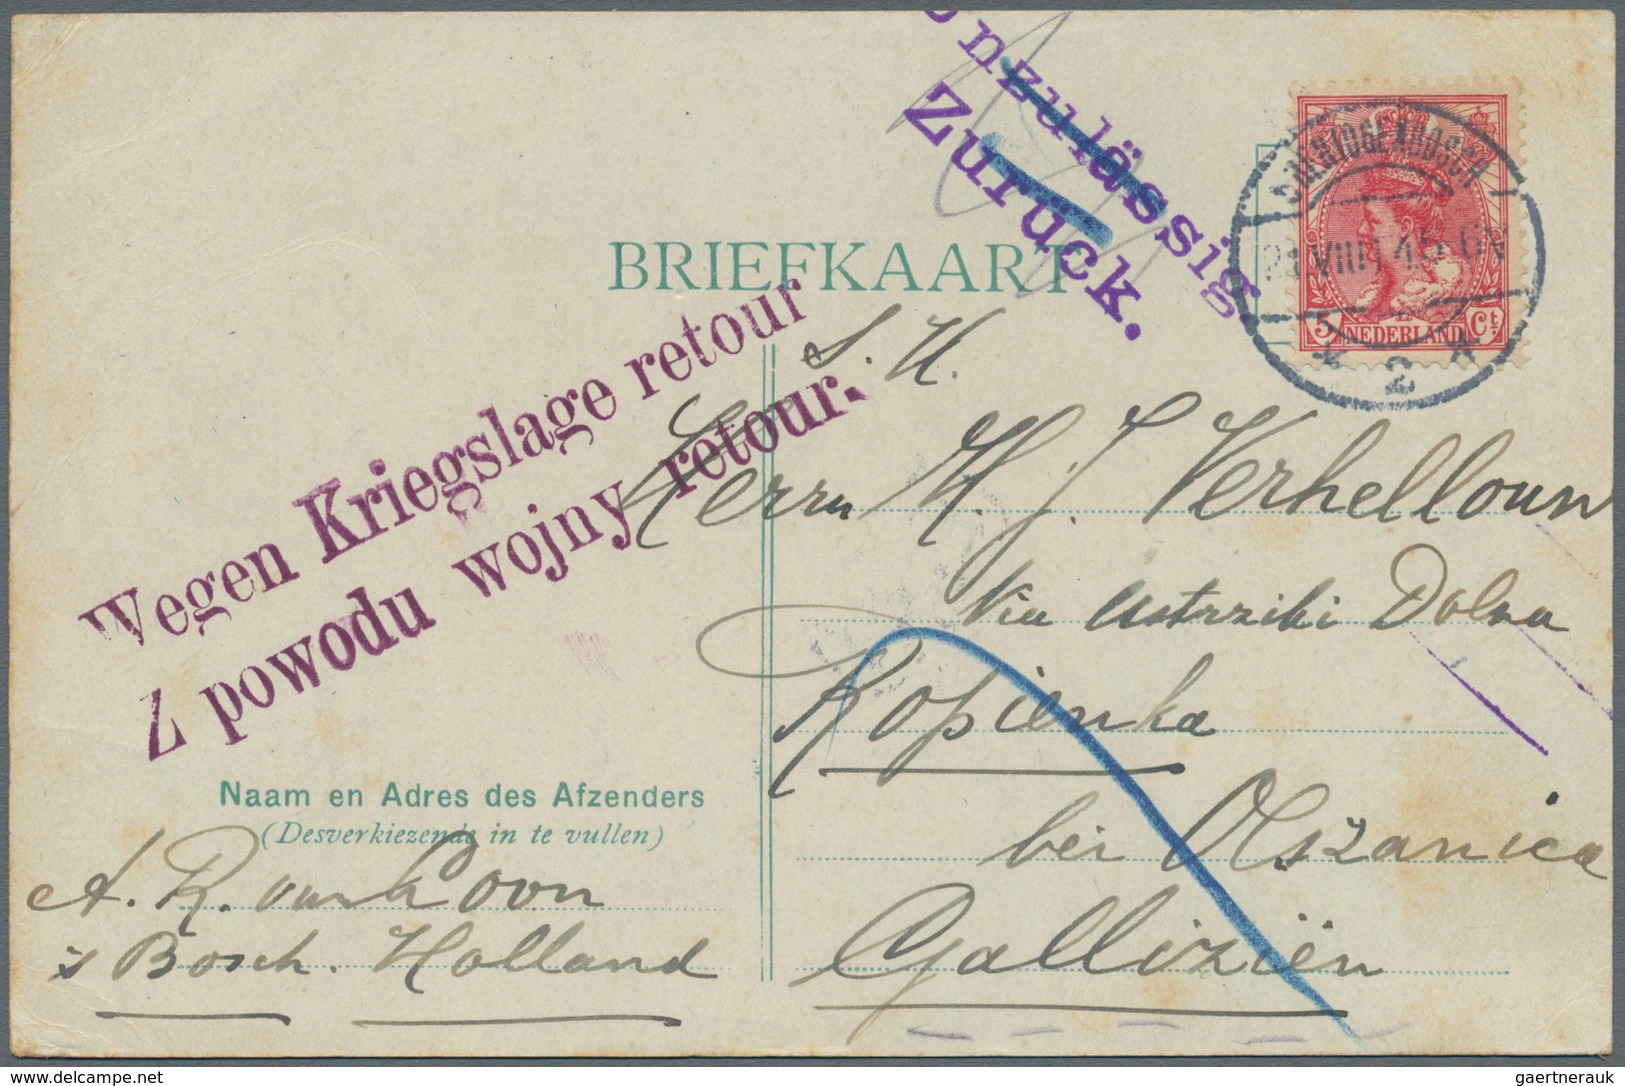 onzulässig.
Zurück.
BRIEFKAART
5 NEDERLAND Ct.
2
Wegen Kriegslage retour
Z powodu wojny retour.
S. H.
Herrn H. J. Verhelloun
Via Ustrziki Dolna
Ropienka
bei Olszanica
Galliziën
Naam en Adres des Afzenders
(Desverkiezende in te vullen)
A. R. van Loon
's Bosch. Holland
delcampe.net
gaertnerauk